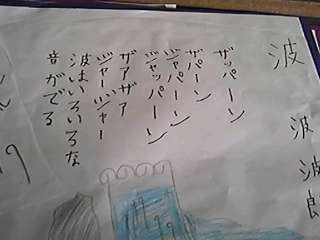 波
波 波郎
ザッパーン
ザパーン
ジャパーン
ジャッパーン
ザアザア
ジャージャー
波はいろいろな
音がでる